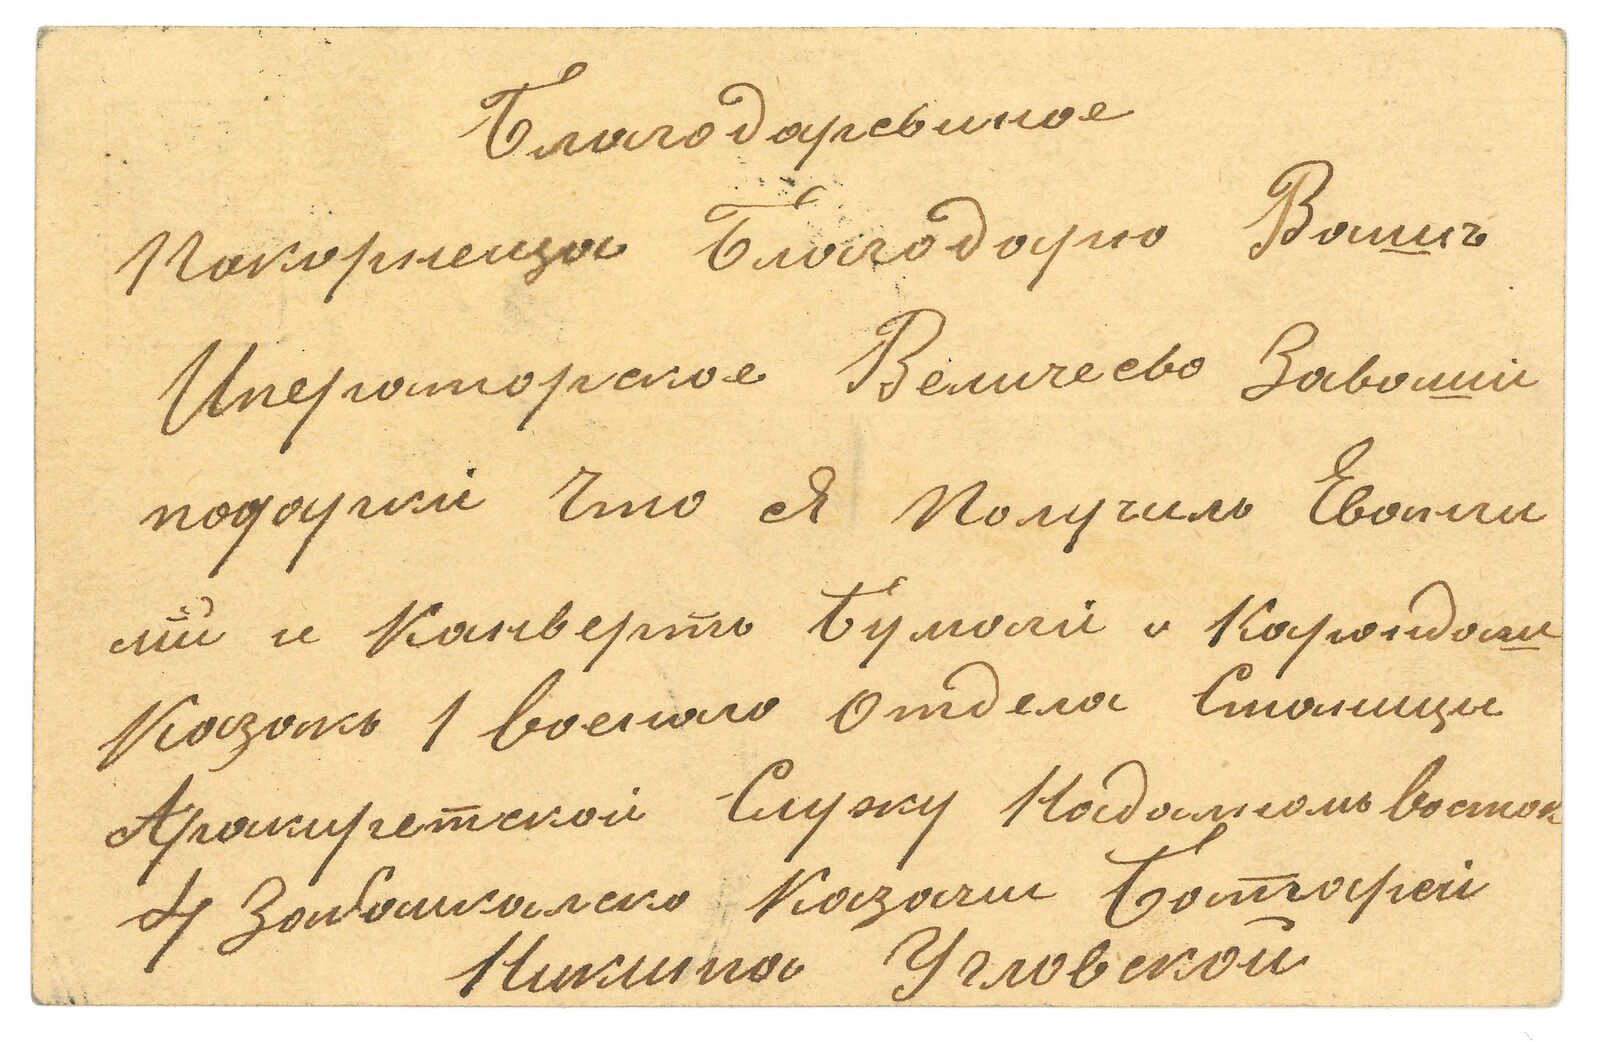 Благодарсьиное
Пакорнеща Благодарю Вашъ
Иператорское Величесво Заваший
подаркй Что Я Получилъ Еванги
лий и Канвертъ Бумаги и Карандаш
Казакъ 1 военаго Отдела Станицы
Аракиретской Служу Надалномъ восток
4 Забайкалско Казачи Батарей
Никита Угловской